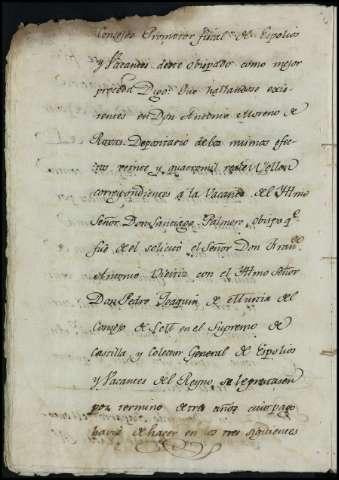 Consejo Promotor fiscal de Espolios
y Vacantes deeste obispado como mejor
proceda Digo: Que hallandose exis-
tentes en Don Antonio Moreno de
Roxas Depositario de los mismos efec-
tos, veinte y quatro mil reales Vellon
correspondientes a la Vacante del Illmo
Señor Don Santiago Palmero, obispo qe
fué de el solicitó el Señor Don Franco
Antonio con el Illmo Señor
Don Pedro Joaquin de Murcia del
Consejo de S.M. en el Supremo de
Castilla, y Colector General de Espolios
y Vacantes del Reyno, se le prestasen
por termino de tres años cuio pago
havia de hacer en los tres siguientes